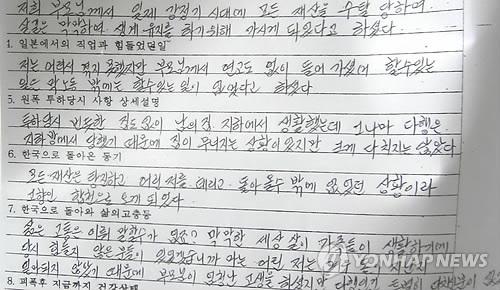 저희 부모님께서 일제 강점기 시대에 모든 재산을 수탈 당하여
살길 막막하여 생계 유지를 하기위해 가시게 되었다고 하셨다
1. 일본에서의 직업과 힘들었던일
저는 어려서 했지만 부모님께서 연고도 없이 들어 가셨기에 할수있는
일은 막노동 밖에는 할수있는 일이 없었다고 하셨다
5. 원폭 투하당시 사항 상세설명
투하당시 변변한 집도 없이 남의집 지하에서 생활했는데 그나마 다행은
지하방에서 당했기 때문에 집이 무너지는 상황이 있지만 크게 다치지는 않았다
6. 한국으로 돌아온 동기
모든 재산을 탕진하고 어린 저를 데리고 돌아 올수 밖에 없었던 상황이라
고향인 합천으로 오게 되었다
7. 한국으로 돌아와 삶의고충등
삶은 고통은 이뤄 말할수가 없죠? 막막한 세상 살이 가족들이 생활하기에
당시 힘들지 않은 분들이 있겠습니까 마는 어린 저는 해수 얼마 지난지
얼마되지 않았기 때문에 부모님이 엄청난 고생을 하셨지만 다행이
8. 피폭후 지금까지 건강상태
YONHAP NEWS